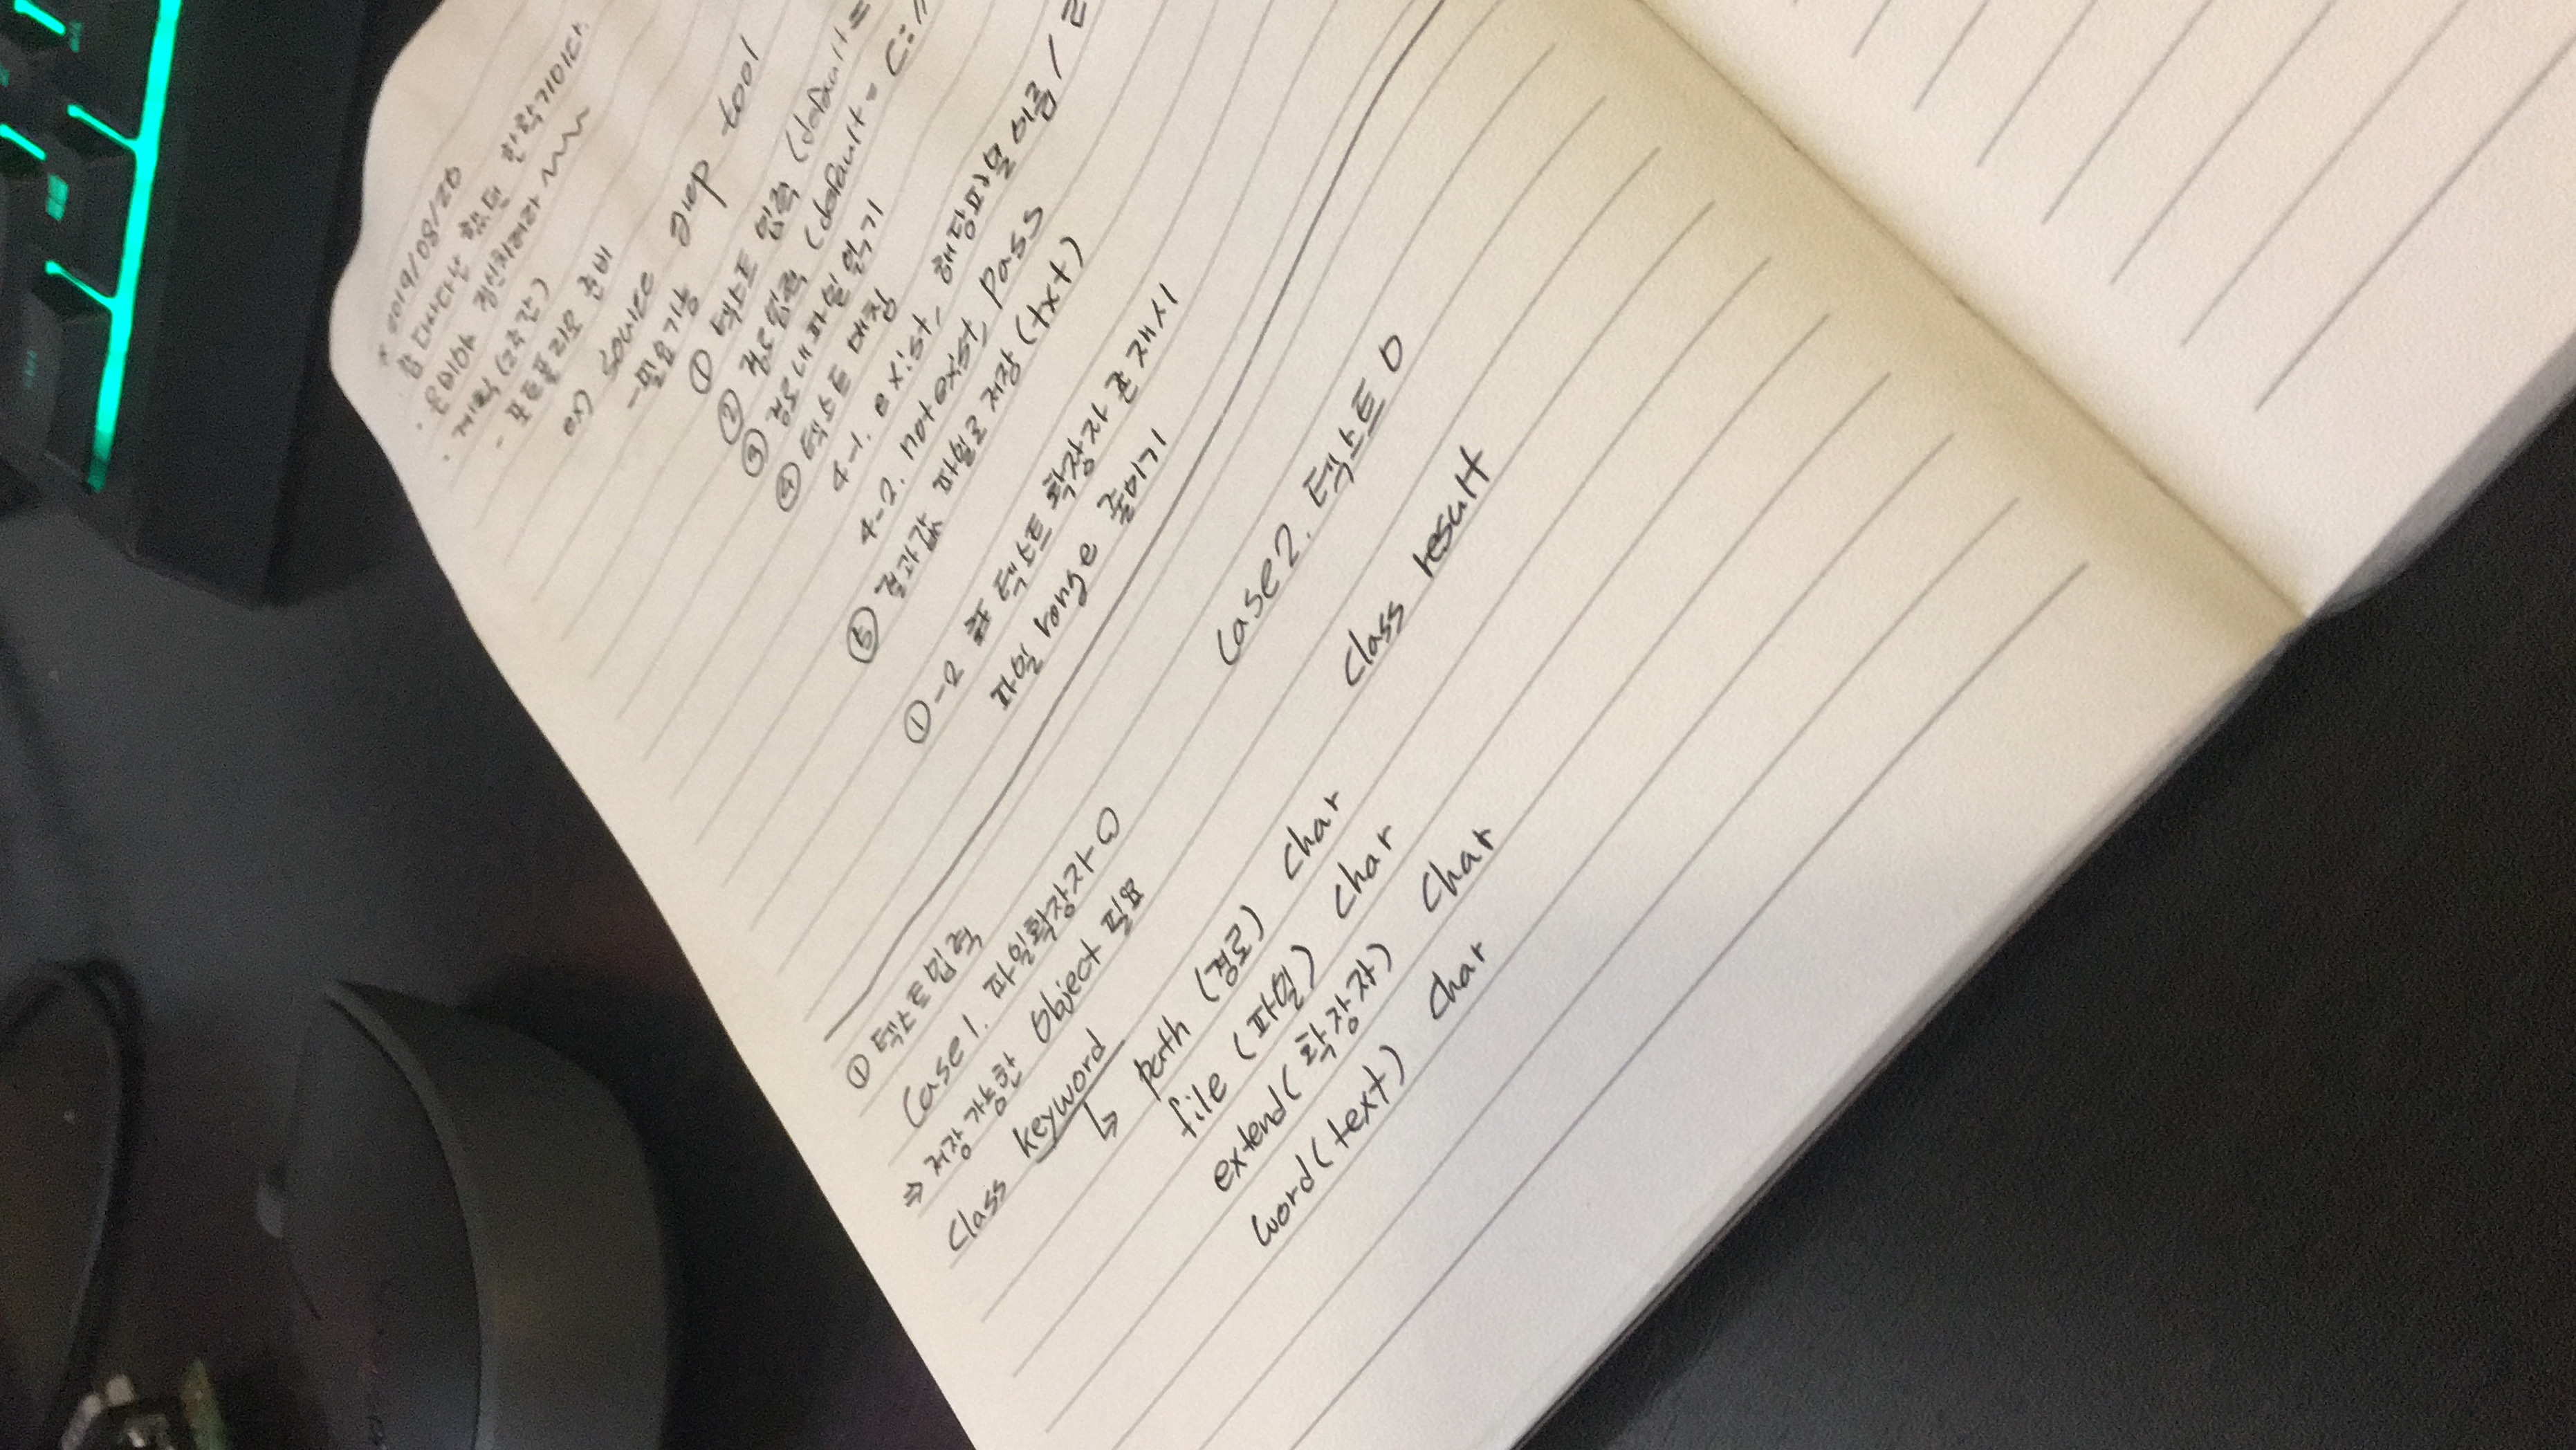 * 2019/08/20
참 다사다난 했던 한 학기이다.
· 은비야 정신차려라 ~~~
· 계획 (2주간)
- 포트폴리오 준비
ex) source grep tool
- 필요기능
① 텍스트 입력 (default =
② 경로입력 (default = C://
③ 경로 내 파일 읽기
④ 텍스트 매칭
4-1. exist, 해당파일 이름 /
4-2. not exist, pass
⑤ 결과값 파일로 저장 (txt)
①-2 텍스트 확장자 존재시
파일 range 줄이기
① 텍스트입력
Case 1. 파일확장자 O
⇒ 저장 가능한 Object 필요
Class keyword
↳ path (경로) char
file (파일) char
extend (확장자) char
word (text) char
Case 2. 텍스트 O
Class result